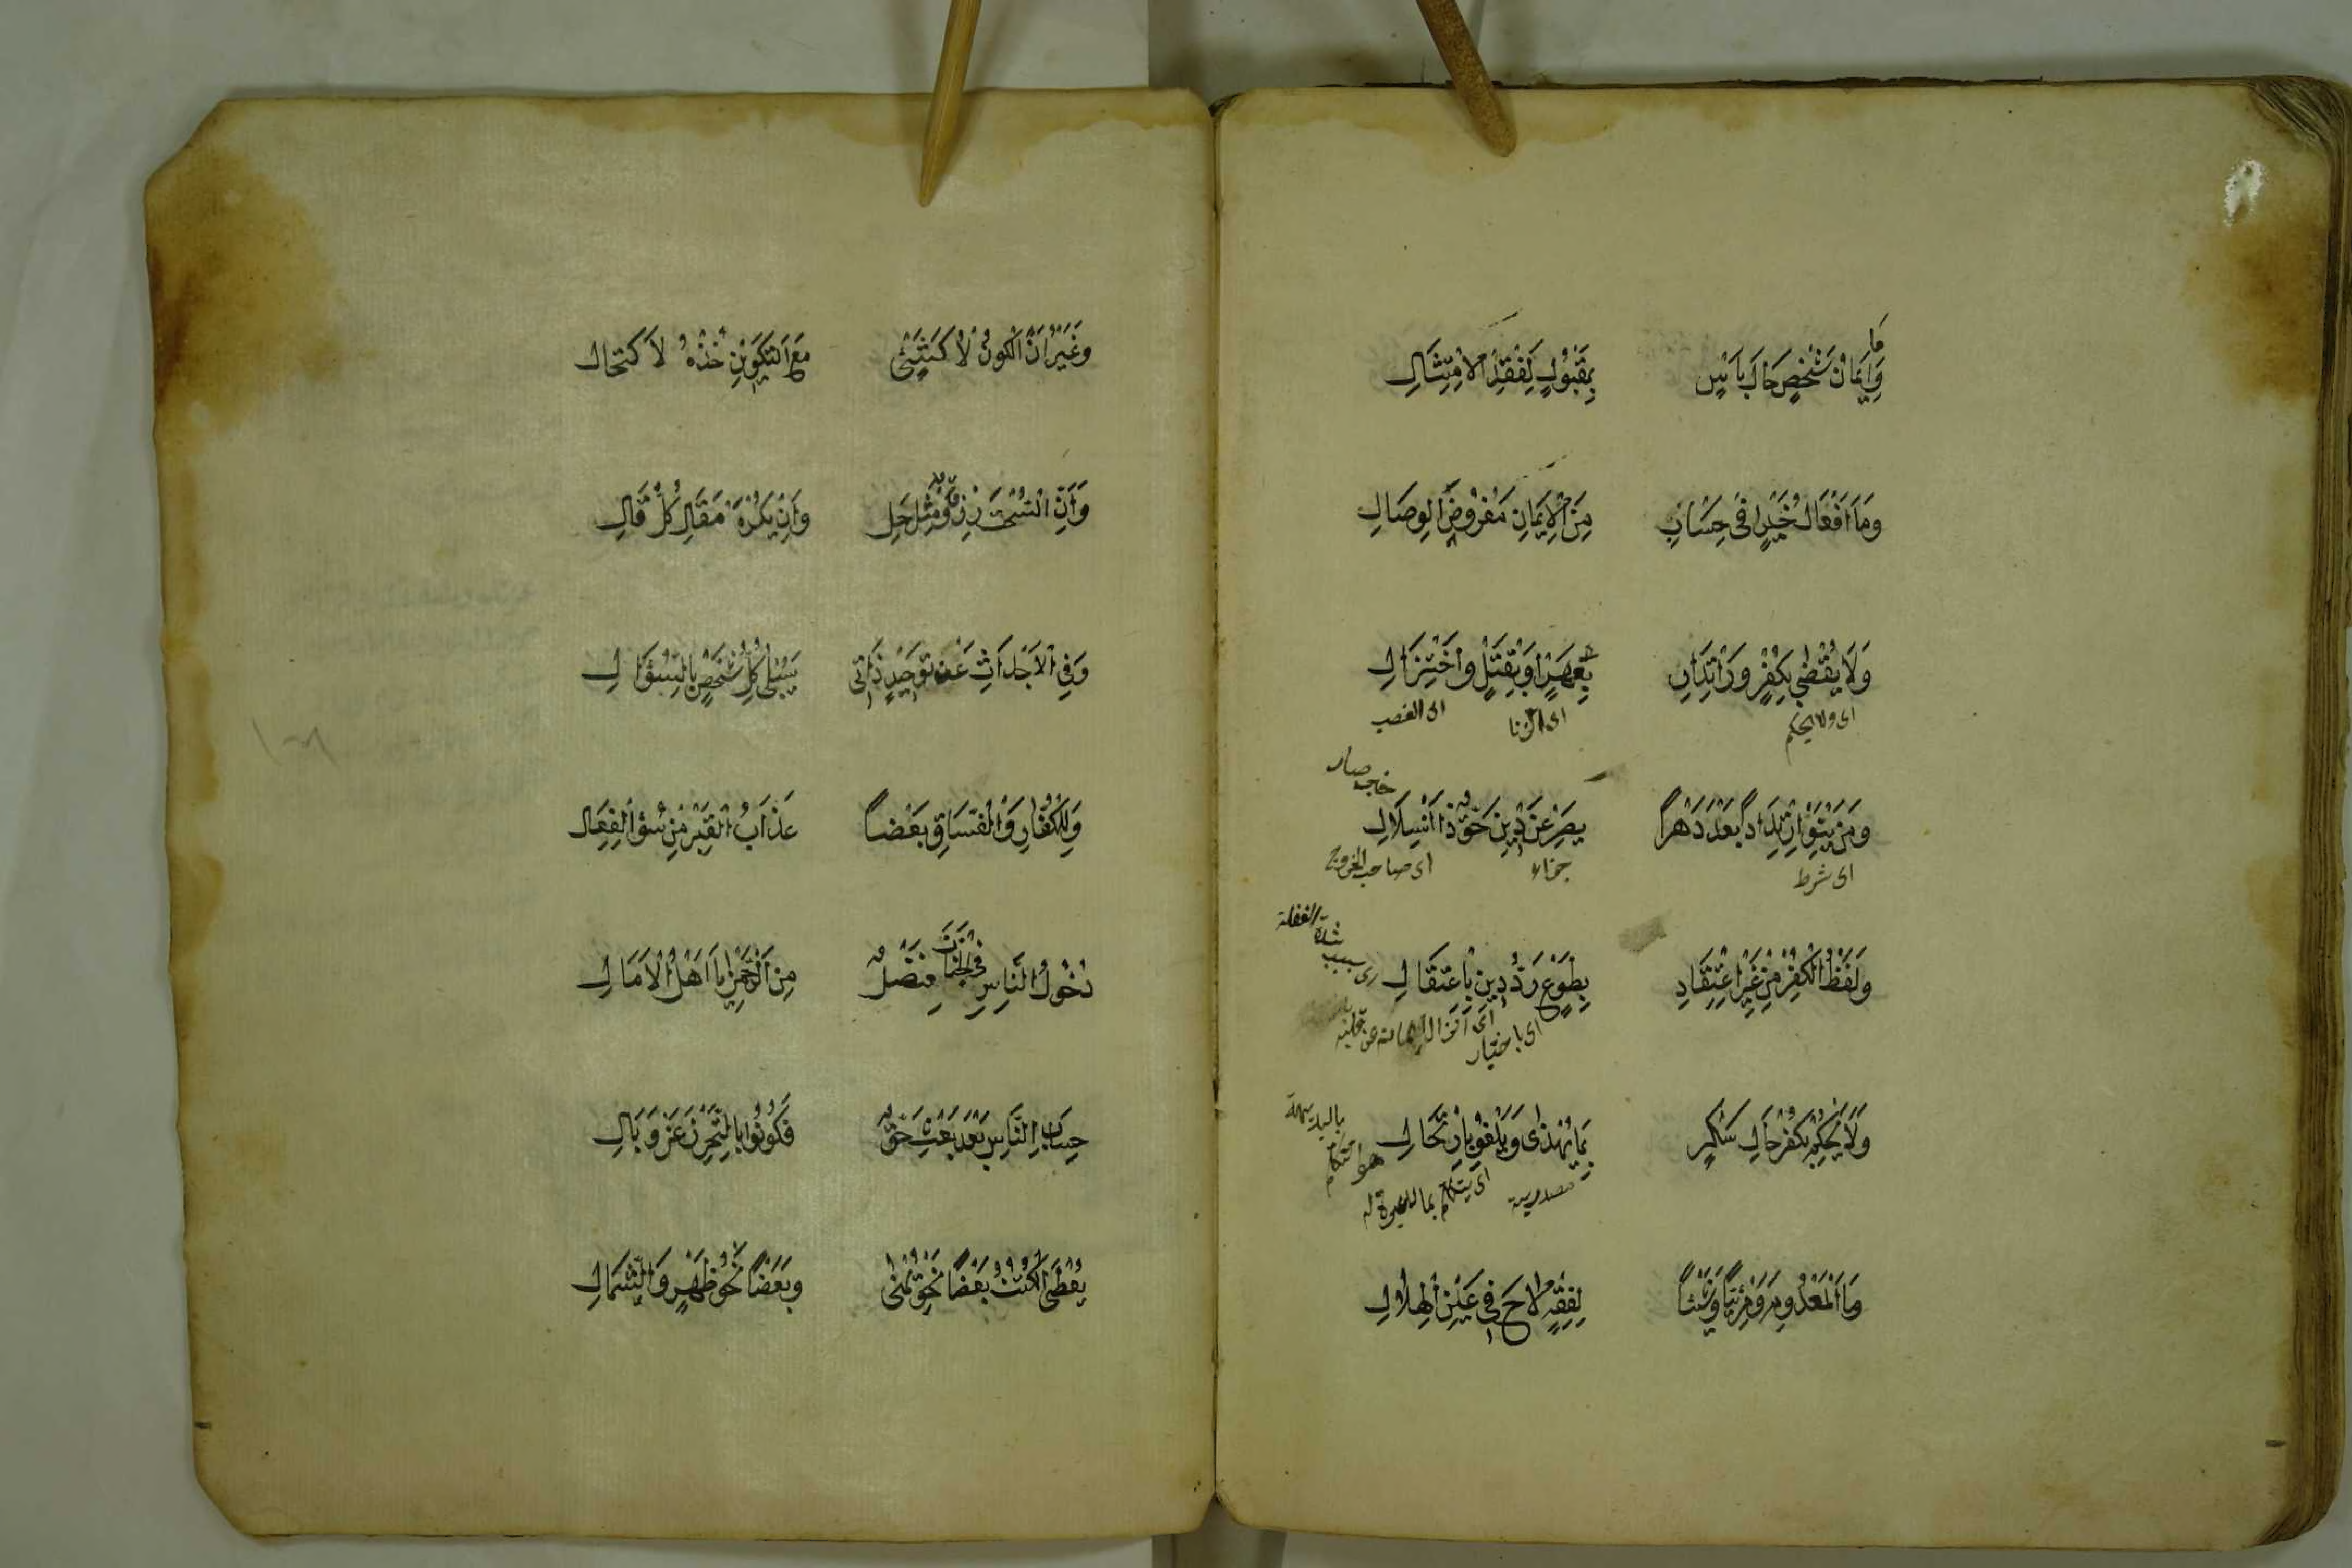 وَمَا اِيمَانُ شَخْصٍ حَالَ بَأْسٍ بِمَقْبُولٍ لِفَقْدِ الْاِمْتِثَالِ
وَمَا اَفْعَالُ خَيْرٍ فِي حِسَابٍ مِنَ الْاِيمَانِ مَفْرُوضَ الْوِصَالِ
وَلَا يُقْضَى بِكُفْرٍ وَارْتِدَادٍ بِعَهْرٍ اَوْ بِقَتْلٍ وَاخْتِزَالِ
اى ولا يحكم اى الزنا اى الغصب
وَمَنْ يَنْوِ ارْتِدَادًا بَعْدَ دَهْرٍ يَصِرْ عَنْ دِينِ حَقٍّ ذَا انْسِلَالِ
خبر صار
اى شرط جزاء اى صاحب الخروج
وَلَفْظُ الْكُفْرِ مِنْ غَيْرِ اعْتِقَادٍ بِطَوْعٍ رَدُّ دِينٍ بِاعْتِقَالِ
بسبب شدة الغفلة
اى باختيار
وَلَا يُحْكَمْ بِكُفْرٍ حَالَ سُكْرٍ بِمَا يَهْذِى وَيَلْغُو بِارْتِجَالِ
مصدرية اى يتكلم
وَمَا الْمَعْدُومُ مَرْئِيًّا وَشَيْئًا لِفِقْهٍ لَاحَ فِي عَيْنِ الْهِلَالِ
وَغَيْرَانِ الْمُكَوَّنُ لَا كَشَيْءٍ مَعَ التَّكْوِينِ خُذْهُ لِاكْتِحَالِ
وَاَنَّ السُّحْتَ رِزْقٌ مِثْلُ حِلٍّ وَاِنْ يَكْرَهْ مَقَالِي كُلُّ قَالِ
وَفِي الْاَجْدَاثِ عَنْ تَوْحِيدِ ذَاتِى سَيُبْلَى كُلُّ شَخْصٍ بِالسُّؤَالِ
وَلِلْكُفَّارِ وَالْفُسَّاقِ بَعْضًا عَذَابُ الْقَبْرِ مِنْ سُوءِ الْفِعَالِ
دُخُولُ النَّاسِ فِي الْجَنَّاتِ فَضْلٌ مِنَ الرَّحْمٰنِ يَا اَهْلَ الْاَمَالِ
حِسَابُ النَّاسِ بَعْدَ الْبَعْثِ حَقٌّ فَكُونُوا بِالتَّحَرُّزِ عَنْ وَبَالِ
يُعْطَى الْكُتْبُ بَعْضًا نَحْوَ يُمْنَى وَبَعْضًا نَحْوَ ظَهْرٍ وَالشِّمَالِ